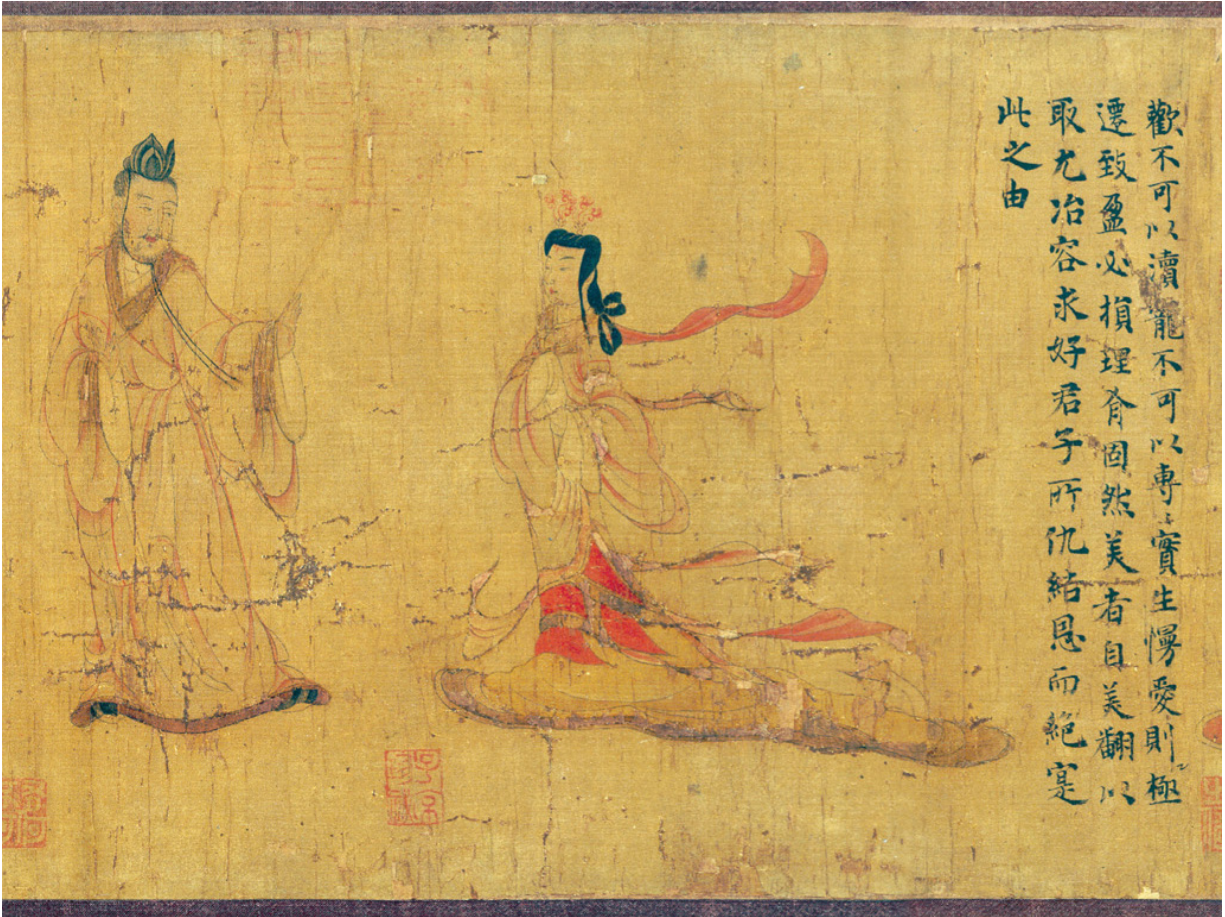 歡不可以瀆寵不可以專〻實生慢愛則極
遷致盈必損理有固然美者自美翻以
取尤冶容求好君子所仇結恩而絶寔
此之由